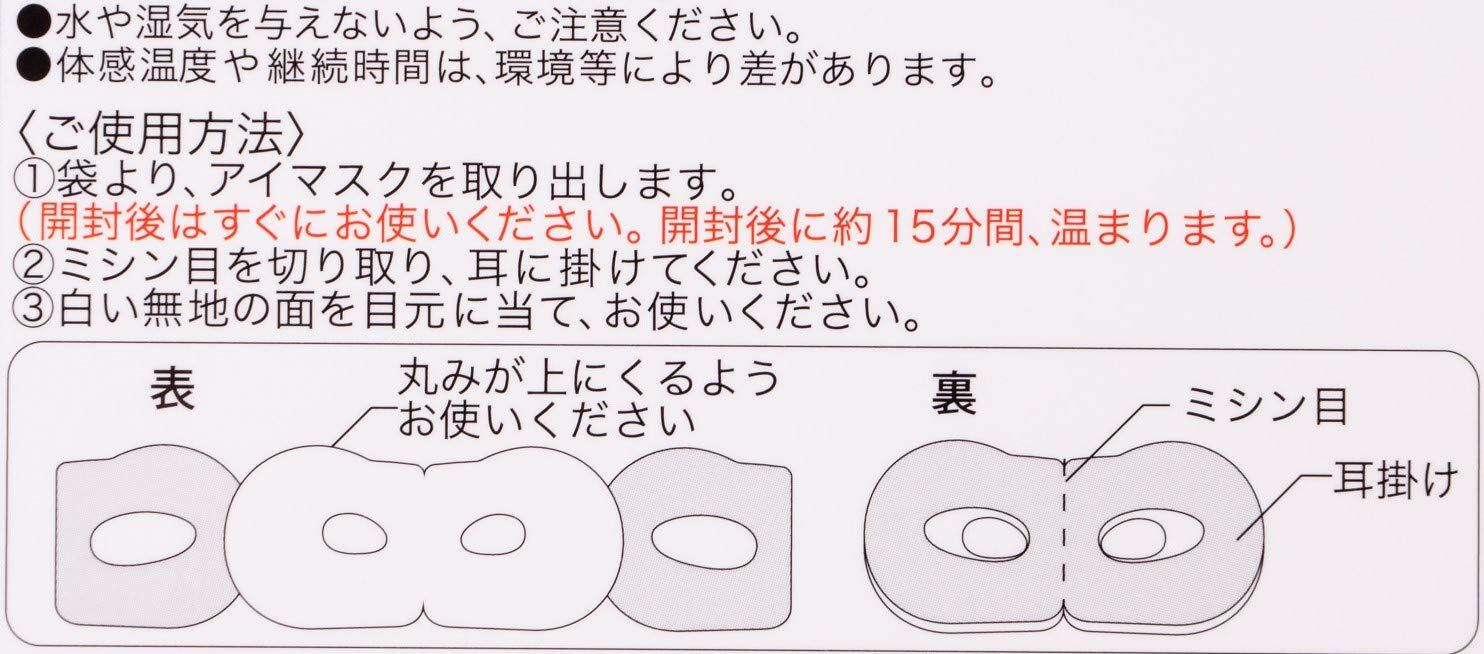 ●水や湿気を与えないよう、ご注意ください。
●体感温度や継続時間は、環境等により差があります。
〈ご使用方法〉
①袋より、アイマスクを取り出します。
（開封後はすぐにお使いください。開封後に約15分間、温まります。）
②ミシン目を切り取り、耳に掛けてください。
③白い無地の面を目元に当て、お使いください。
表
丸みが上にくるよう
お使いください
裏
ミシン目
耳掛け